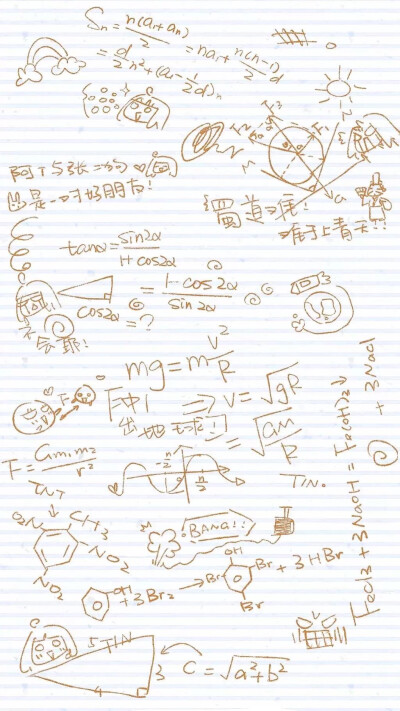 Sn = n(a₁+an)/2 = na₁ + n(n-1)/2 d
= d/2 n² + (a₁ - 1/2 d)n
阿T与张二狗
也是一对好朋友!
蜀道难
难于上青天!!
tanα = sin2α/1+cos2α
= 1-cos2α/sin2α
cos2α = ?
不会耶!
mg = m V²/R
⇒ V = √gR
= √GM/R
冲出地球!
F
F = Gm₁m₂/r²
-π/2
π/2
TNT
TIN.
CH3
O₂N
NO₂
NO₂
BANG!!
OH
+ 3Br₂ →
OH
Br
Br
Br
+ 3HBr
FeCl₃ + 3NaOH = Fe(OH)₃↓ + 3NaCl
5
TIN
3
4
C = √a²+b²